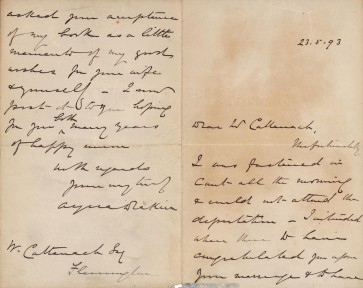 23.8.93
Dear Mr Cattanach,
Unfortunately
I was fastened in
Court all the morning
& could not attend the
deputation - I intended
when there to have
congratulated you upon
your marriage & to have
asked your acceptance
of my book as a little
memento of my good
wishes for your wife
& yourself - I now
post it to you hoping
for you both many years
of happy union
with regards
yours very truly
Alfred Deakin
W. Cattanach Esq
Flemington